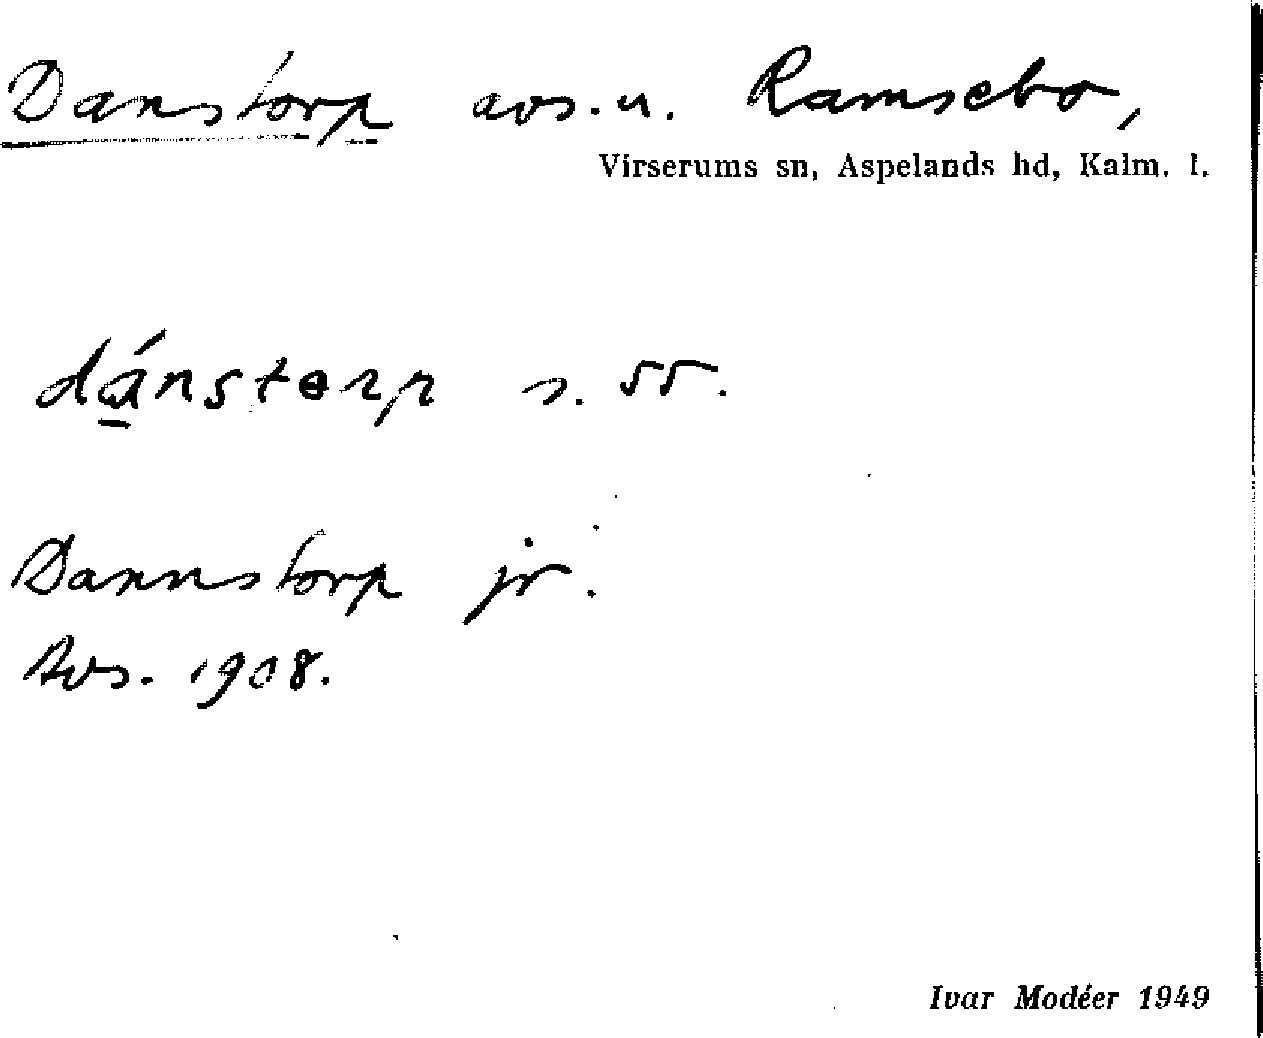 Danstorp avs. u. Ramsebo,
Virserums sn, Aspelands hd, Kalm. l.
dánstɵrp s. 55.
Dannstorp jr.
Avs. 1908.
Ivar Modéer 1949